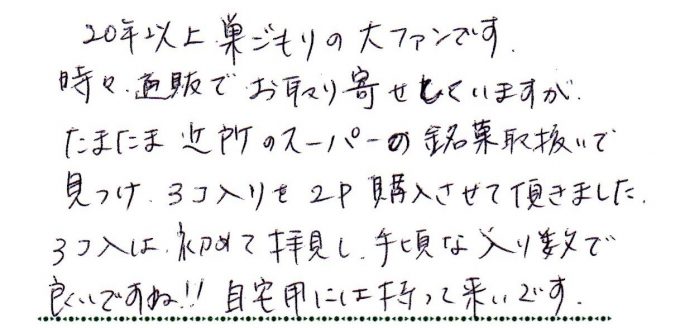 20年以上巣ごもりの大ファンです.
時々、通販でお取り寄せしていますが、
たまたま近所のスーパーの銘菓取扱いで
見つけ、3コ入りを2P購入させて頂きました.
3コ入は、初めて拝見し、手頃な入り数で
良いですね!! 自宅用には持って来いです.